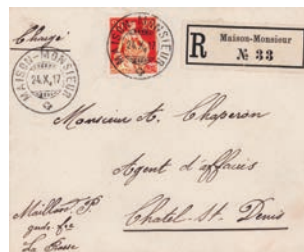 Chargé
MAISON-MONSIEUR
24.X.17
R
Maison-Monsieur
№ 33
Monsieur A. Chaperon
Agent d'affaires
Chatel-St. Denis
Maillard, P.
garde-frs
La Rasse